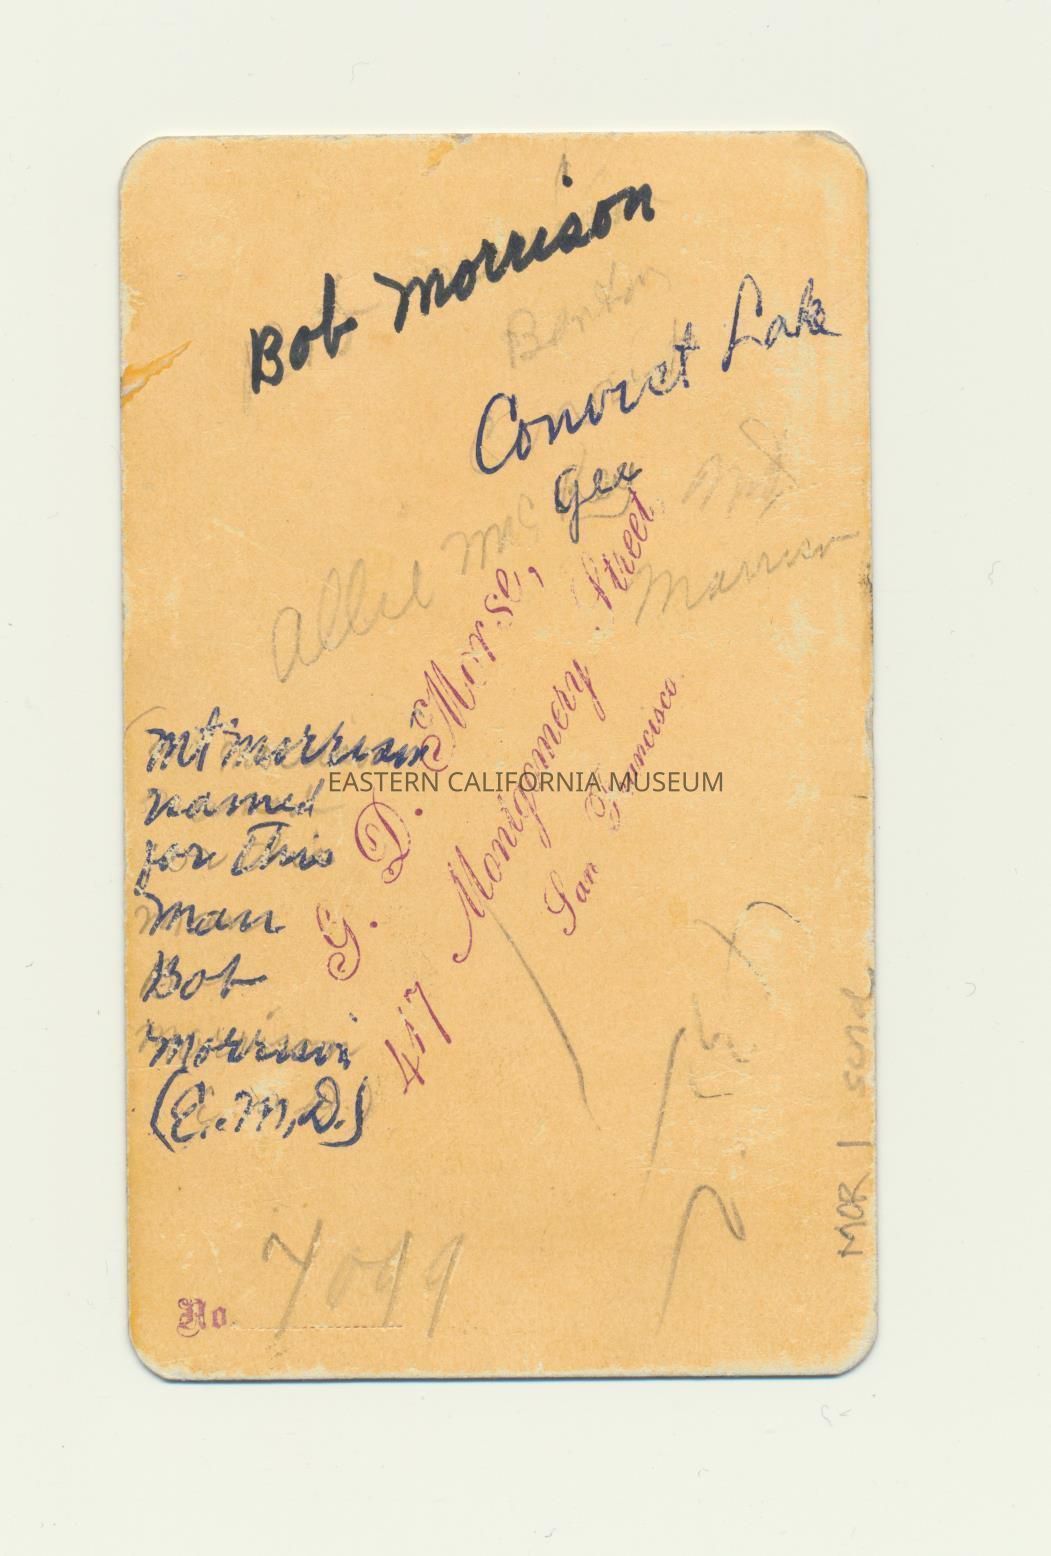 Bob Morrison
Benton
Convict Lake
Gex
Allie Mc
Mt
Morrison
G. D. Morse,
417 Montgomery Street,
San Francisco.
Mt Morrison
named
for this
man
Bob
Morrison
(E.M.D.)
EASTERN CALIFORNIA MUSEUM
No.
MOR 1